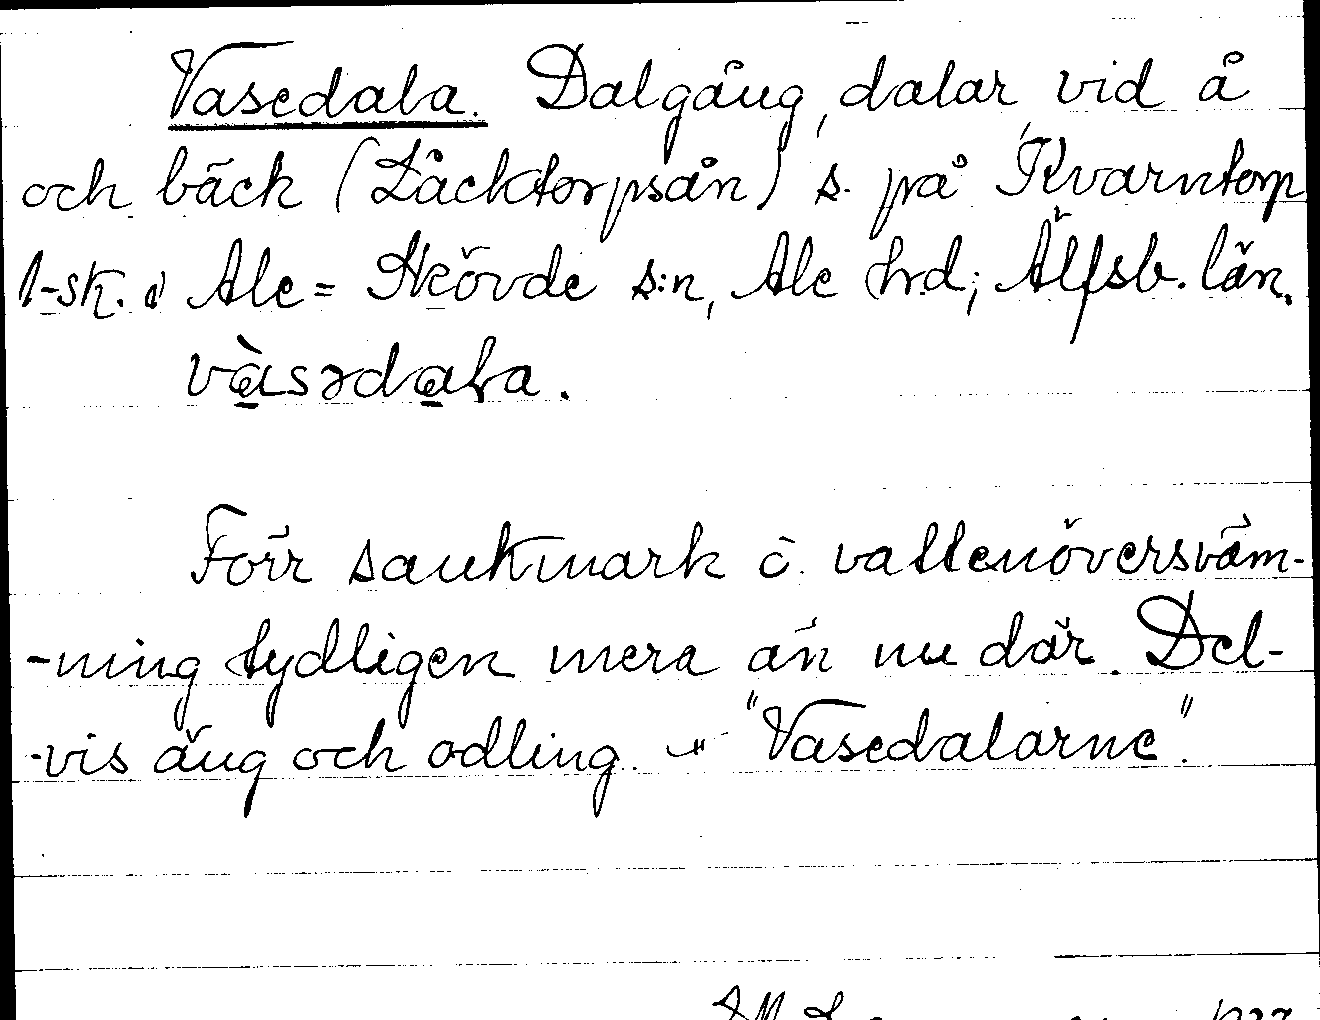 Vasedala. Dalgång, dalar vid å
och bäck (Låcktorpsån) s. på Kvarntorp
1-sk. i Ale=Skövde s:n, Ale hrd; Älfsb. län.
vàsədala.
Förr sankmark o. vattenöversväm-
-ning tydligen mera än nu där. Del-
-vis äng och odling. - "Vasedalarne".